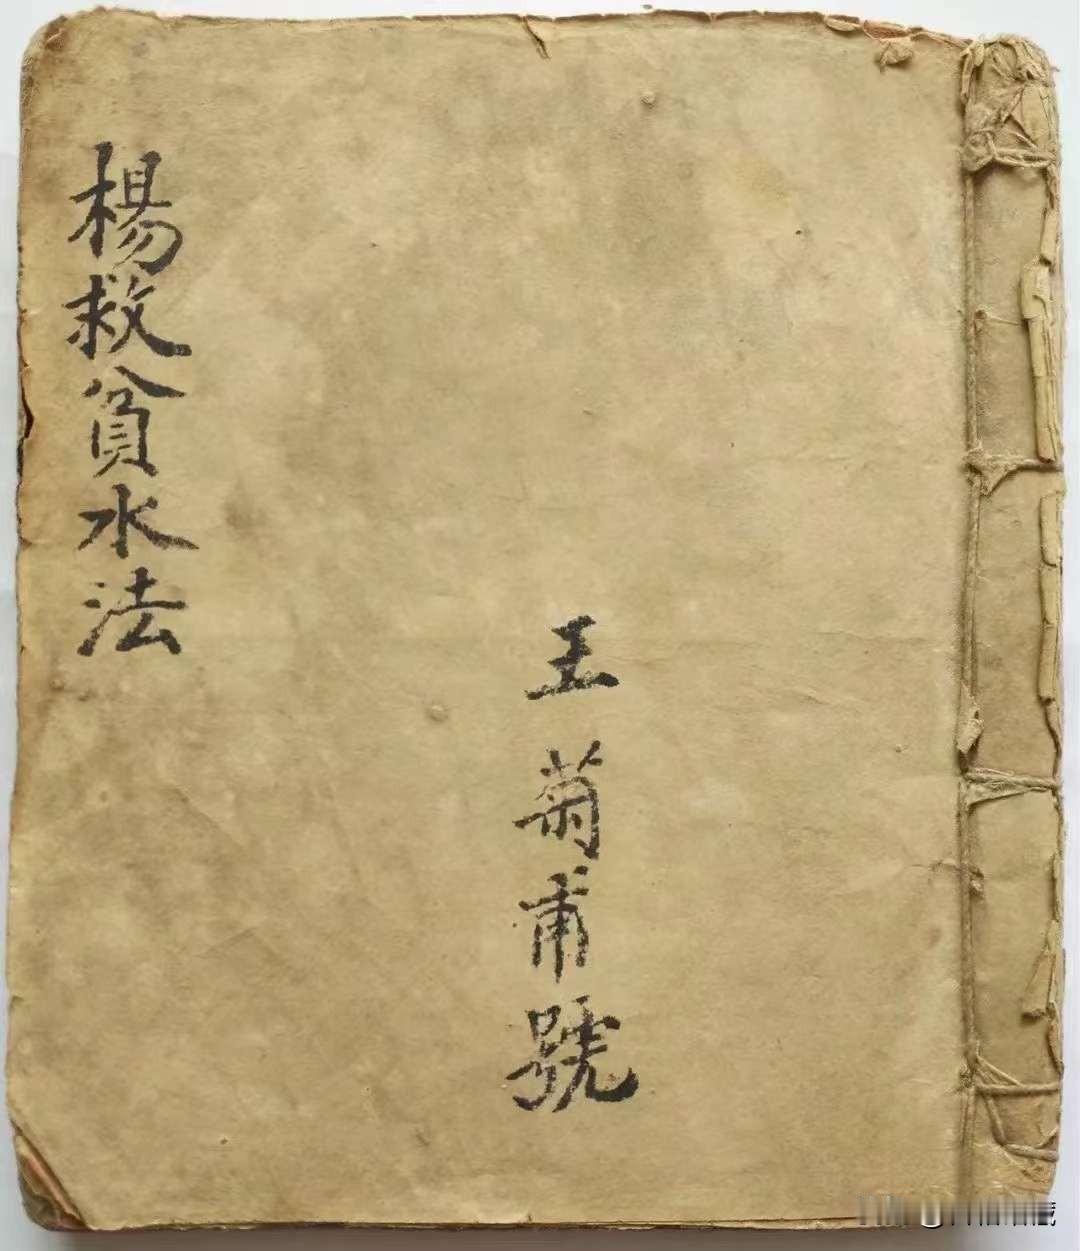 楊救貧水法
王菊甫號
藏